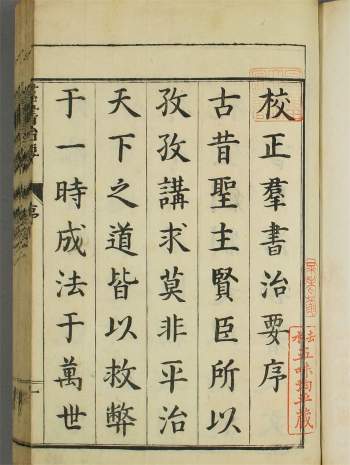 校正羣書治要序
古昔聖主賢臣所以
孜孜講求莫非平治
天下之道皆以救弊
于一時成法于萬世